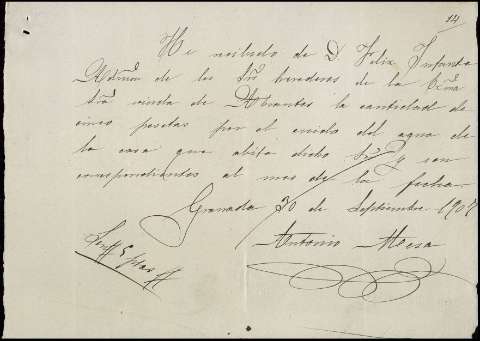 14
He recibido de D. Felix Infante
Admor de los Sres herederos de la Exma
Sra viuda de Abrantes la cantidad de
cinco pesetas por el cuido del agua de
la casa que abita dicho Sr y son
correspondientes al mes de la fecha
Granada 30 de Septiembre 1907
Antonio Mesa
Son 5 ptas